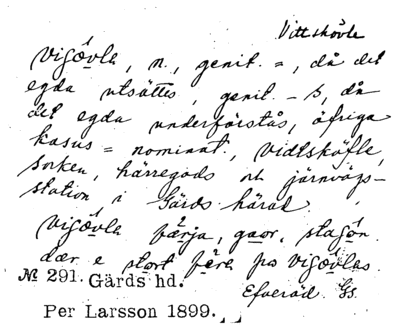 Vittskövle
vigövle, n., genit. =, då det
egda utsättes, genit. - s, då
det egda underförstås, öfriga
kasus = nominat., Vidtsköfle,
socken, härregods och järnvägs-
station, i Gärds härad.
vigövle färja, gaor, stasjón.
dær e stort får pro vigövles.
№ 291. Gärds hd. Efveröd Gs.
Per Larsson 1899.